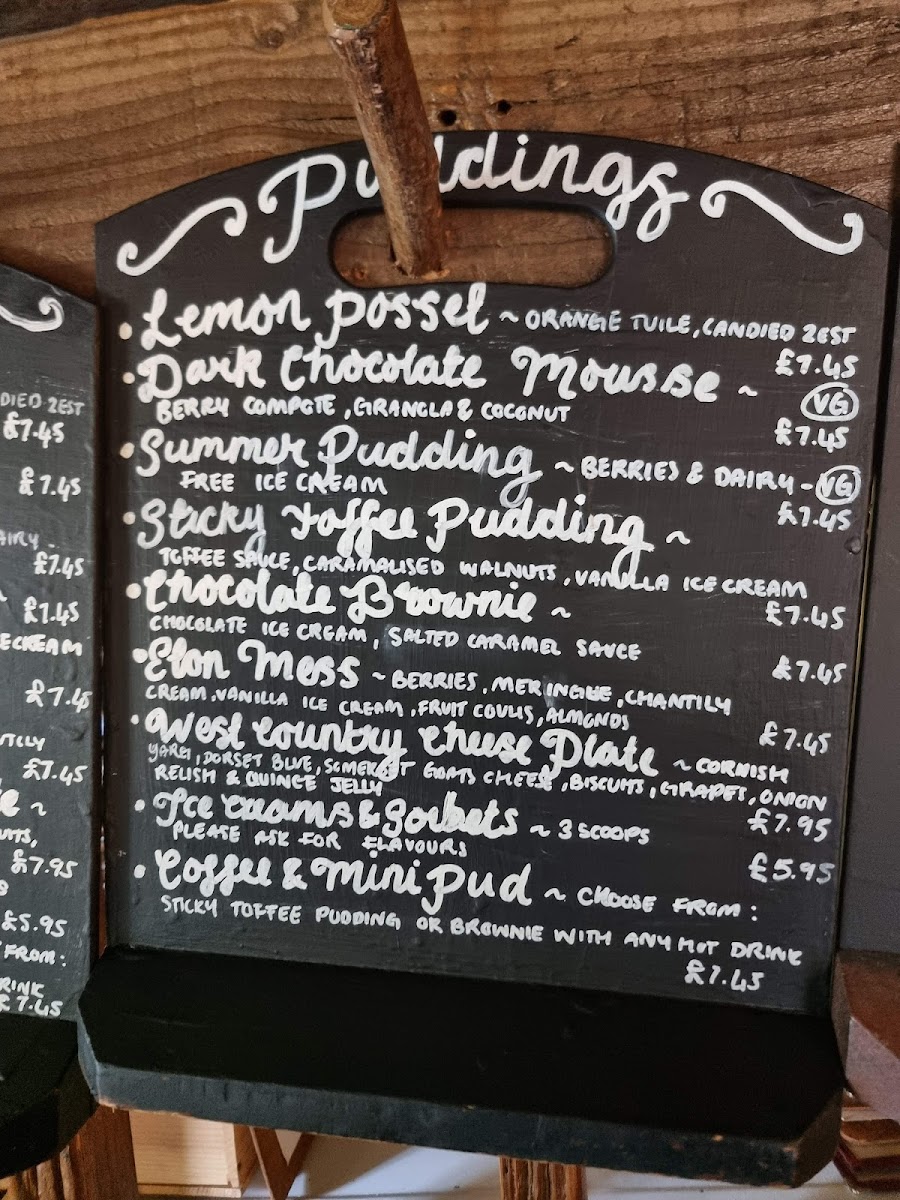 Puddings
• Lemon posset ~ ORANGE TUILE, CANDIED ZEST
£7.45
• Dark Chocolate Mousse ~ VG
BERRY COMPOTE, GRANOLA & COCONUT
£7.45
• Summer Pudding ~ BERRIES & DAIRY - VG
FREE ICE CREAM
£7.45
• Sticky Toffee Pudding ~
TOFFEE SAUCE, CARAMALISED WALNUTS, VANILLA ICE CREAM
£7.45
• Chocolate Brownie ~
CHOCOLATE ICE CREAM, SALTED CARAMEL SAUCE
£7.45
• Eton Mess ~ BERRIES, MERINGUE, CHANTILY
CREAM, VANILLA ICE CREAM, FRUIT COULIS, ALMONDS
£7.45
• West Country Cheese Plate ~ CORNISH
YARG, DORSET BLUE, SOMERSET GOATS CHEESE, BISCUITS, GRAPES, ONION
RELISH & QUINCE JELLY
£7.95
• Ice Creams & Sorbets ~ 3 SCOOPS
PLEASE ASK FOR FLAVOURS
£5.95
• Coffee & Mini Pud ~ CHOOSE FROM:
STICKY TOFFEE PUDDING OR BROWNIE WITH ANY HOT DRINK
£7.45
DIED ZEST
£7.45
£7.45
AIRY -
£7.45
£7.45
ECREAM
£7.45
TILLY
£7.45
e ~
UITS,
£7.95
S
£5.95
FROM:
RINK
£7.45